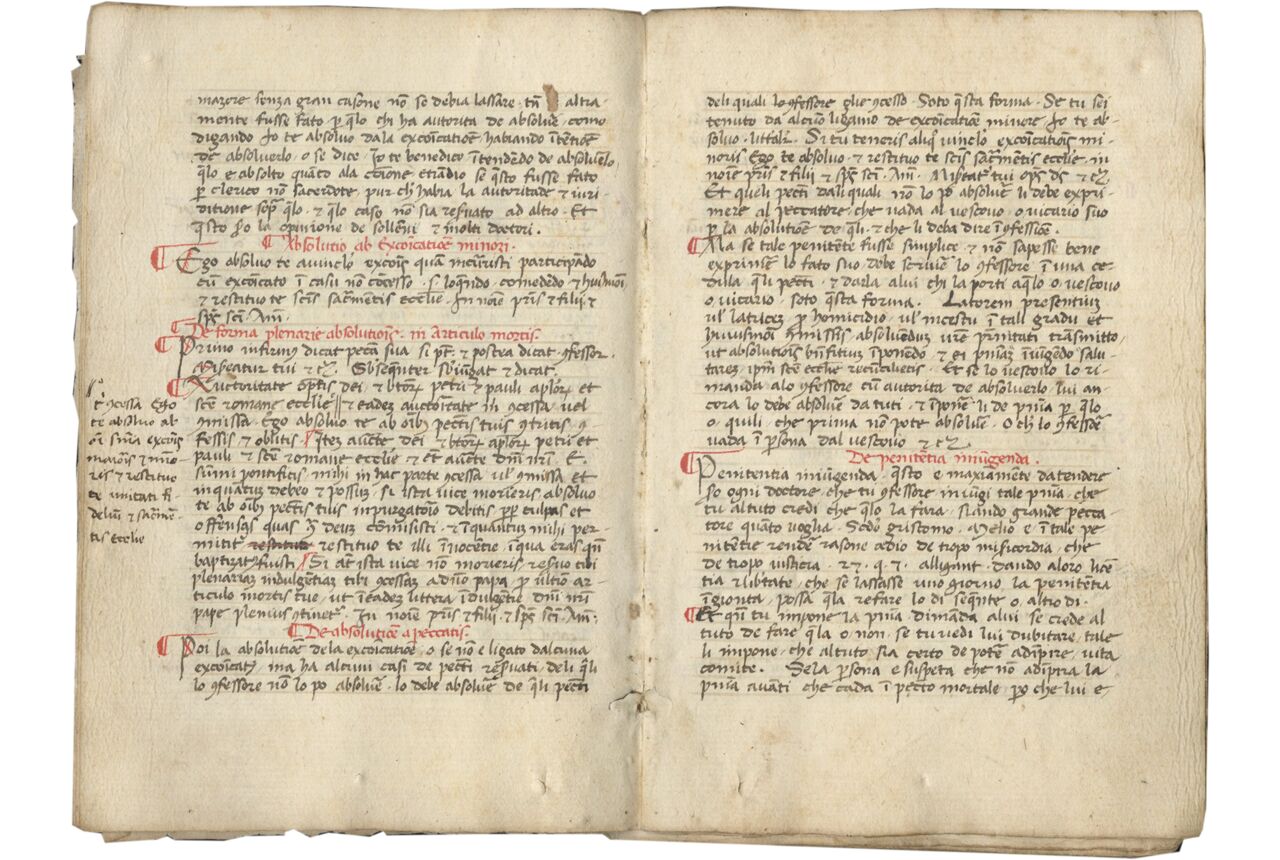 mazore senza gran casone nō se debia lassare · tn̄ altra-
mente fusse fato p̄ q̄lo chi ha autorita de absolue͂, como
digando Jo te absoluo dala excoīcatiōe, habiando ītētiōe
de absoluerlo · o se dice · Jo te benedico ītendēdo de absoluēlo,
q̄lo e absolto quāto ala · etiādio se q̄sto fusse fato
p̄ clerico nō sacerdote, pur ch̄ habia la autoritade & iuri-
ditione sop̄ q̄lo · & q̄lo caso nō sia res̄uato ad altro · Et
q̄sto la opinione de & molti doctori ·
¶ Absolutio ab Excoīcatiōe minori ·
¶ Ego absoluo te auinclo excoīs quā incurristi participādo
cū excoīcato ī casu nō cōcesso · s · loquēdo · comedēdo &
& restituo te scīs sacr̄mentis ecclie · In noīe pr̄is & filij &
sp̄s sc̄i · Am̄ ·
¶ De forma plenarie absolutiōis · in Articulo mortis ·
¶ Primo infirmus dicat peccā sua si pt̄ · & postea dicat · 9fessor ·
Misereatur tui & c̄ · Subsequēter & dicat ·
¶ Auctoritate oīptis dei & btōꝝ petri & pauli aplōꝝ et
scē romane ecclie // & eadez auctoritate m̄ 9cessa · uel
9missa · Ego absoluo te ab oīb; pecc̄is tuis 9tritis · 9
fessis & oblitis · Itez aucte dei & btōꝝ aplōꝝ petri et
pauli & scē romane ecclie & et aucte dn̄i nr̄i · E ·
sūmi pontificis · mihi in hac parte 9cessa uł 9missa et
inquantuz debeo & possuz · si ista uice morieris absoluo
te ab oīb; pecc̄is tuis inpurgatoio debitis culpas et
offensas quas deuz comisisti · & īquantuz mihi per-
mititr̄ restituo te illi īnocētie, īqua eras qn̄
baptizat⁹ fuisti · Si at̄ ista uice nō morieris res̄uo tibi
plenariaz indulgētiaz tibi 9cessaz adn̄o papa p̄ ultīo ar-
ticulo mortis tue, ut ī eadez littera īdulgētie dn̄i nr̄i
pape plenius 9tinetr̄ · In noīe pr̄is & filij · & sp̄s sc̄i · Am̄ ·
¶ De absolutiōe apeccatis ·
¶ Poi la absolutiōe dela excoīcatiōe, o se nō e ligato dalcuna
excoīcatz̄, ma ha alcuni casi de pecc̄ti res̄uati, deli q̄li
lo 9fessore nō lo po absolue͂ · lo debe absolue͂ de q̄li pecc̄ti
m̄ 9cessa Ego
te absoluo ab
oī snīa excoīs
maioris & mino-
ris & restituo
te unitati fi-
deliuz & sacmē-
tis ecclie
deli quali lo 9fessore glie 9cesso · Soto q̄sta forma · Se tu sei
tenuto da alcun ligamo de excoīcatiōe minore Jo te ab-
soluo · litalr̄ · Si tu teneris aliq̄ uinclo excoīcatiōis mi-
noris Ego te absoluo · & restituo te scīs sacr̄mentis ecclie · in
noīe pr̄is & filij & sp̄s sc̄i · Am̄ · Miseatr̄ tui ops ds & c̄ ·
Et queli pecc̄ti dali quali nō lo po absolue͂ li debe expri-
mere al peccatore, che uada al uescouo, o uicario suo
p̄ la absolutiōe de q̄li · & che li deba dire ī 9fessiōe ·
¶ Ma se tale penitēte fusse simplice & nō sapesse bene
exprime͂ lo fato suo, debe scriue͂ lo 9fessore ī una ce-
dula q̄li pecc̄ti · & darla alui chi la porti aq̄lo o uescouo
o uicario, soto q̄sta forma · Latorem presentium
uł latricez p̄ homicidio, uł incestu ī tali gradu et
huiusmōi absoluenduz ur̄e pr̄nitati trāsmitto,
ut absolutiōis bn̄fitiuz īponēdo & ei pn̄iaz iniūgēdo salu-
tarez, ip̄m scē ecclie recūcilietis · Et se lo uescouo lo ri-
manda alo 9fessore cū autorita de absoluerlo, lui an-
cora lo debe absolue͂ da tuti, & īpone͂ li de pn̄ia p̄ q̄lo
o, quili, che prima nō pote absolue͂ · O ch̄ lo 9fess̄e
uada ī p̄sona dal uescouo & c̄ ·
De penitētia iniūgenda ·
¶ Penitentia iniūgenda, q̄sto e maxiamēte da tendere
so ogni doctore, che tu 9fessore iniūgi tale pn̄ia, che
tu altuto credi che q̄lo la fara, siando grande pecca-
tore quāto uoglia · Sed̄o grisostomo, Melio e ī tale pe
nitētie rende͂ rasone adio de tropo mis̄icordia, che
de tropo iusticia · 27 · q · 7 · alligant · Dando aloro licē-
tia & libtate, che se lassasse uno giorno la penitētia
īgionta, possa q̄la refare lo di seq̄nte o, altro di ·
¶ Et qn̄ tu impone la pn̄ia dimāda alui se crede al
tuto de fare q̄la o non · se tu uedi lui dubitare, tale
li impone, che altuto sia certo de pote͂ adīpire, uita
comite · Se la p̄sona e suspeta che nō adīpira la
pn̄ia auāti che cada ī pecc̄to mortale, p̄o che lui e